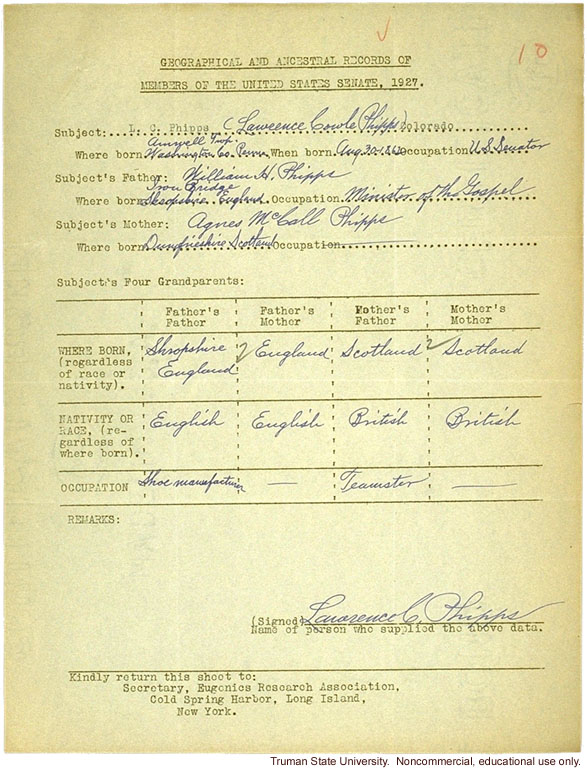 10
GEOGRAPHICAL AND ANCESTRAL RECORDS OF
MEMBERS OF THE UNITED STATES SENATE, 1927.
Subject: L. C. Phipps (Lawrence Cowle Phipps) Colorado
Amwell Twp.
Where born Washington Co. Penna. When born Aug 30 1862 Occupation U.S. Senator
Subject's Father: William H. Phipps
Iron Bridge
Where born Shropshire England. Occupation Minister of the Gospel
Subject's Mother: Agnes McCall Phipps
Where born Dumfrieshire Scotland Occupation
Subject's Four Grandparents:
Father's Father Father's Mother Mother's Father Mother's Mother
WHERE BORN, (regardless of race or nativity). Shropshire England England Scotland Scotland
NATIVITY OR RACE, (regardless of where born). English English British British
OCCUPATION Shoe manufacturer — Teamster —
REMARKS:
(Signed) Lawrence C. Phipps
Name of person who supplied the above data.
Kindly return this sheet to:
Secretary, Eugenics Research Association,
Cold Spring Harbor, Long Island,
New York.
Truman State University. Noncommercial, educational use only.